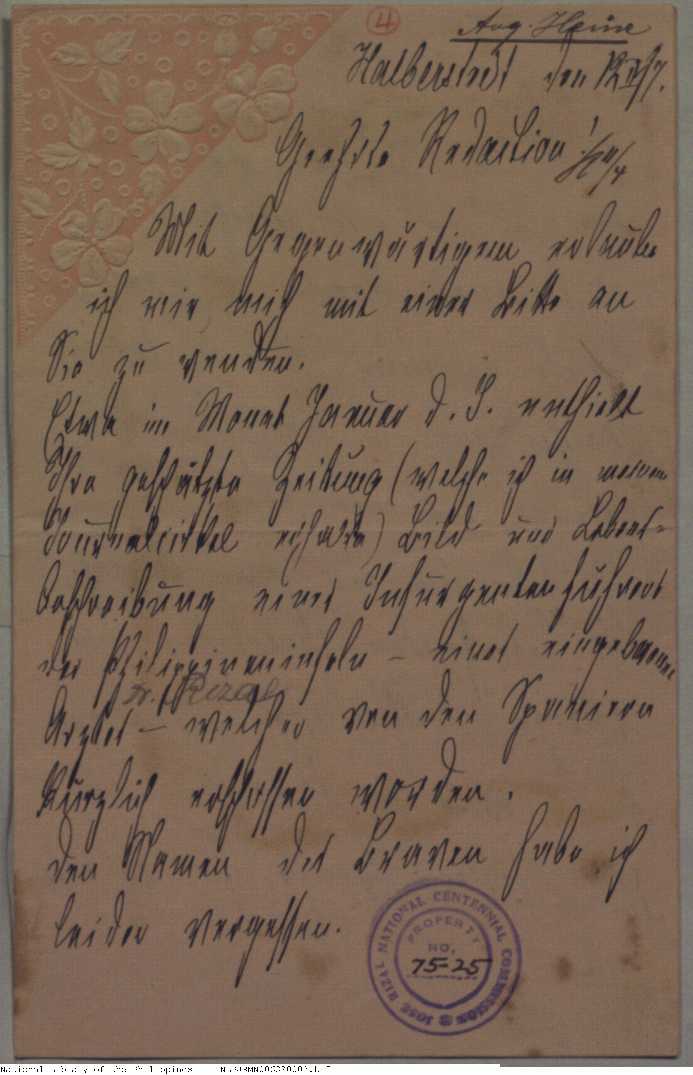 4
Aug. Heine
Halberstadt den
Geehrte Redaction!
Mit Gegenwärtigem erlaube
ich mir mich mit einer Bitte an
Sie zu wenden.
Etwa im Monat Januar d. J. enthielt
Ihre geschätzte Zeitung (welche ich in meinem
Journalcirkel erhalte) Bild und Lebens-
beschreibung eines Insurgentenführers
der Philippineninseln – eines eingeborenen
Dr. Rizal
Arztes – welcher von den Spaniern
kürzlich erschossen worden.
Den Namen des Braven habe ich
leider vergessen.
JOSE RIZAL NATIONAL CENTENNIAL COMMISSION
PROPERTY
NO.
75-25
National Library of the Philippines